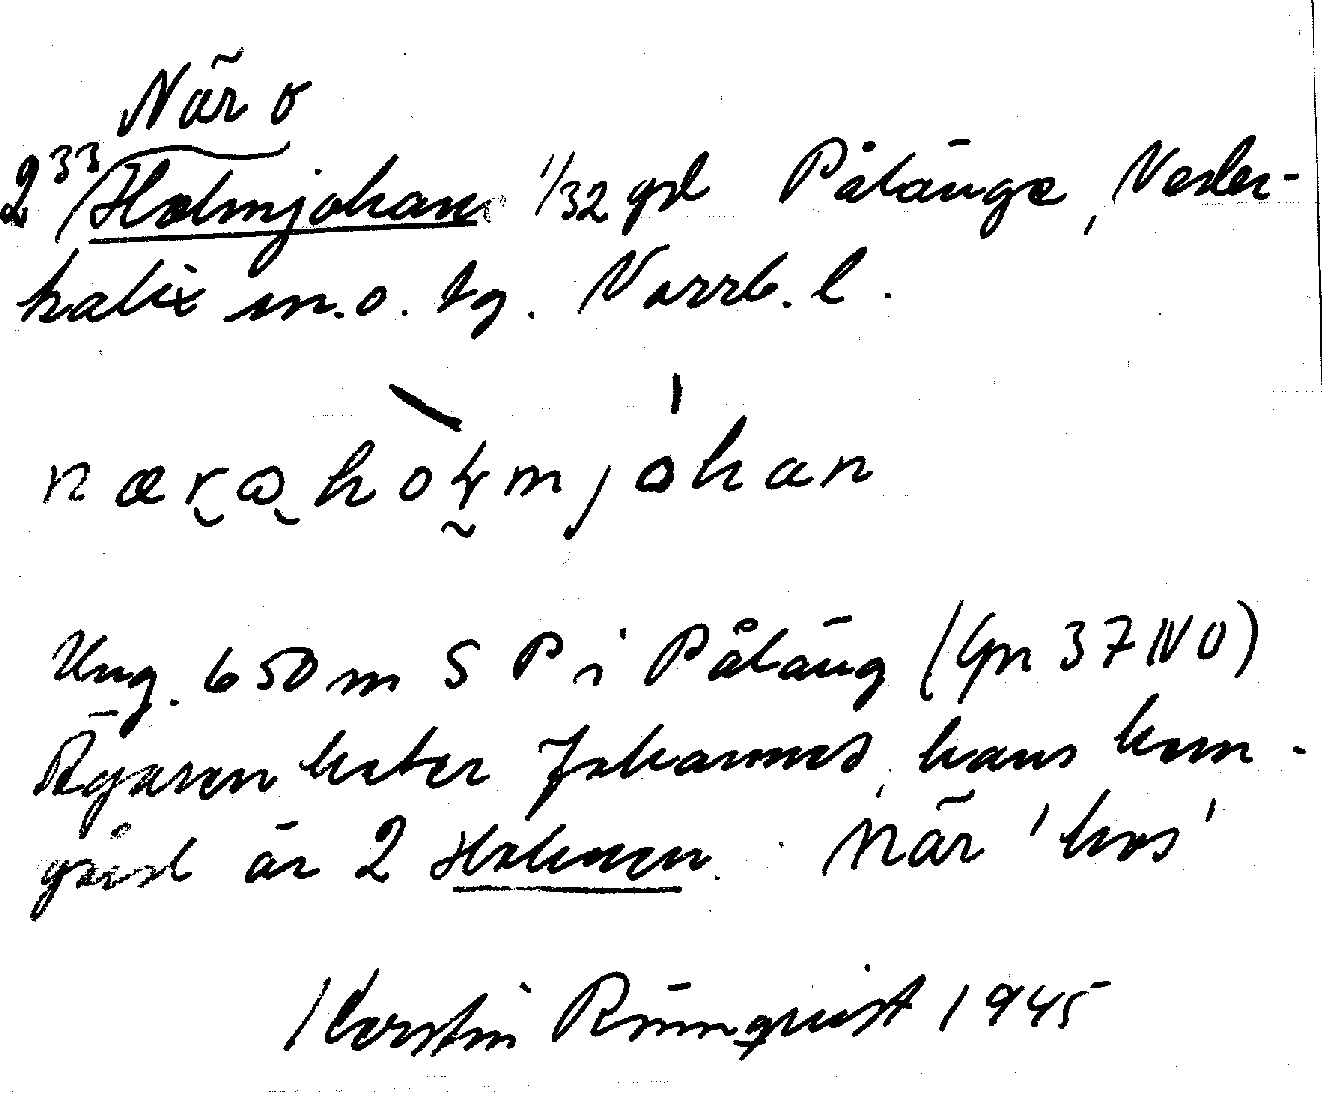 När o
2³³ Holmjohan 1/32 gd Pålänge, Neder-
kalix sn. o. tg. Norrb. l.
næra holmjóhan
Ung. 650 m S P i Påläng (Gn 37 NO)
Ägaren heter Johannes, hans hem-
gård är 2 Holmen. När 'hos'
Kerstin Rönnqvist 1945